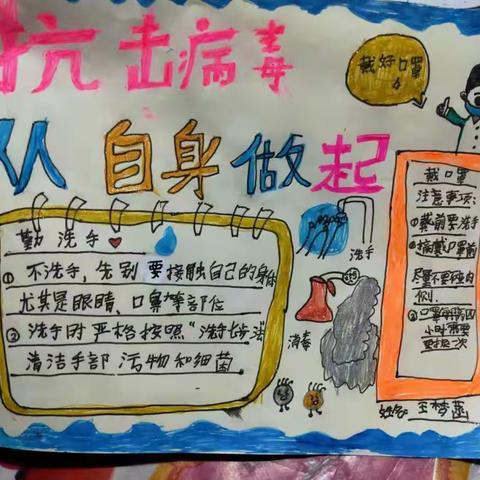 抗击病毒
从自身做起
戴好口罩
勤洗手
① 不洗手,先别要接触自己的身体
尤其是眼睛、口鼻等部位
② 洗手时严格按照“洗手七步法
清洁手部污物和细菌
洗手
消毒
戴口罩
注意事项:
①戴前要洗手
②摘戴口罩前
尽量不要碰内
侧.
③口罩每隔四
小时需要
更换一次
姓名: 王梦菡